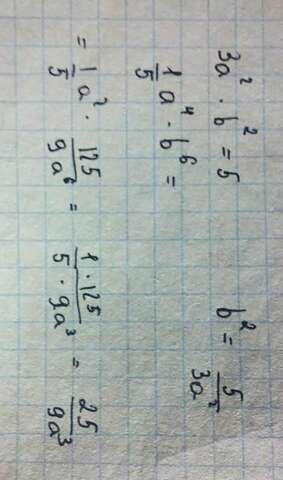 3a² · b² = 5    b² = 5/3a²
1/5 a⁴ · b⁶ =
= 1/5 a² · 125/9a⁶ = 1·125/5·9a³ = 25/9a³